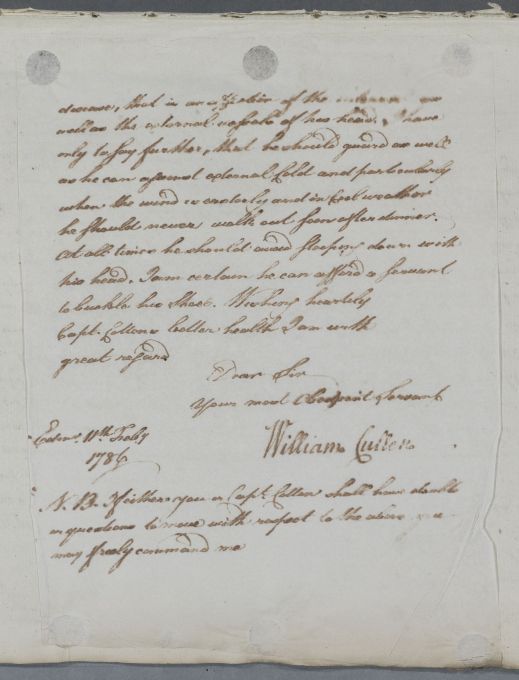 disease, that is an affection of the internal as
well as the external vessels of his head. I have
only to say further, that he should guard as well
as he can against external Cold and particularly
when the wind is easterly and in Cool weather
he should never walk out soon after dinner.
At all times he should avoid stooping down with
his head. I am certain he can afford a servant
to buckle his shoes. Wishing heartily
Capt. Cottens better health I am with
great regard
Dear Sir
Your most Obedient Servant
William Cullen
Edinr. 11th Feby
1786
N. B. If either you or Capt. Cotten shall have doubts
or questions to move with respect to the above you
may freely command me